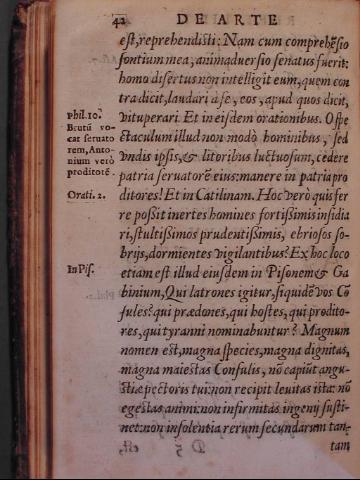 42 DE ARTE
est, reprehendisti: Nam cum comprehẽsio
fontium mea, animaduersio senatus fuerit:
homo disertus non intelligit eum, quem con
tra dicit, laudari à se, eos, apud quos dicit,
vituperari. Et in eisdem orationibus. O spe
Phil. 10.
Brutũ vo-
cat seruato
rem, Anto-
nium verò
proditorẽ.
ctaculum illud non modò hominibus, sed
vndis ipsis, & litoribus luctuosum, cedere
patria seruatorẽ eius: manere in patria pro
ditores! Et in Catilinam. Hoc verò quis fer
Orati. 2.
re possit inertes homines fortissimis insidia
ri, stultissimos prudentissimis, ebriosos so-
brijs, dormientes vigilantibus? Ex hoc loco
In Pis.
etiam est illud eiusdem in Pisonem & Ga
binium, Qui latrones igitur, siquidẽ vos Cõ
sules? qui prædones, qui hostes, qui prodito-
res, qui tyranni nominabuntur? Magnum
nomen est, magna species, magna dignitas,
magna maiestas Consulis, nõ capiũt angu-
stiæ pectoris tui: non recipit leuitas ista: nõ
egestas animi: non infirmitas ingenij susti-
net: non insolentia rerum secundarum tan-
tam